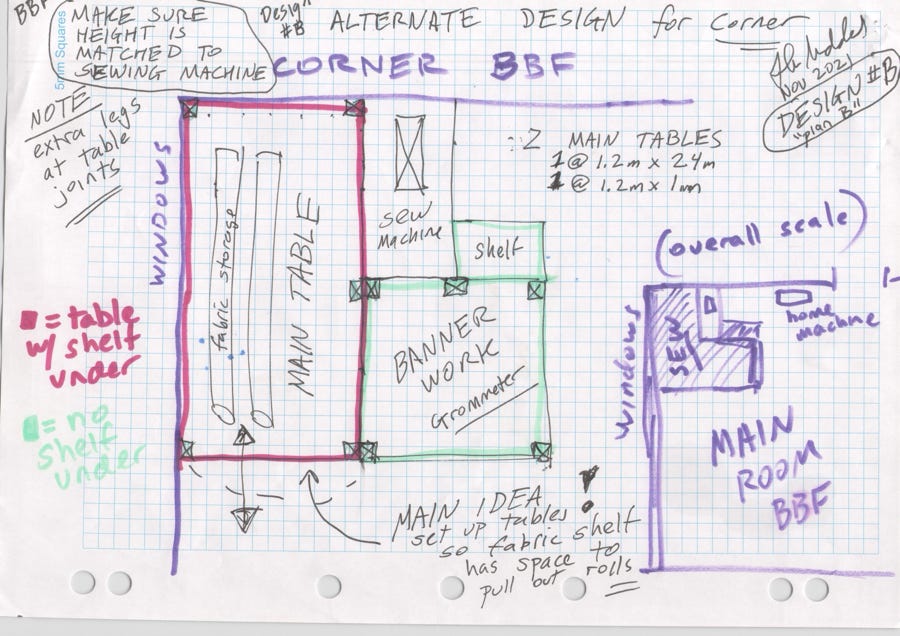 BBF
MAKE SURE
HEIGHT IS
MATCHED TO
SEWING MACHINE
5mm Squares
Design
#B
ALTERNATE DESIGN for Corner
CORNER BBF
Nov 2021
DESIGN #B
"plan B"
NOTE
extra legs
at table
joints
WINDOWS
fabric storage
MAIN TABLE
sew
Machine
Shelf
BANNER
WORK
Grommeter
2 MAIN TABLES
1 @ 1.2m x 2.4m
1 @ 1.2m x 1m
= table
w/ shelf
under
= no
shelf
under
MAIN IDEA
set up tables
so fabric shelf
has space to
pull out rolls
(overall scale)
Windows
SEW
home
machine
MAIN
ROOM
BBF